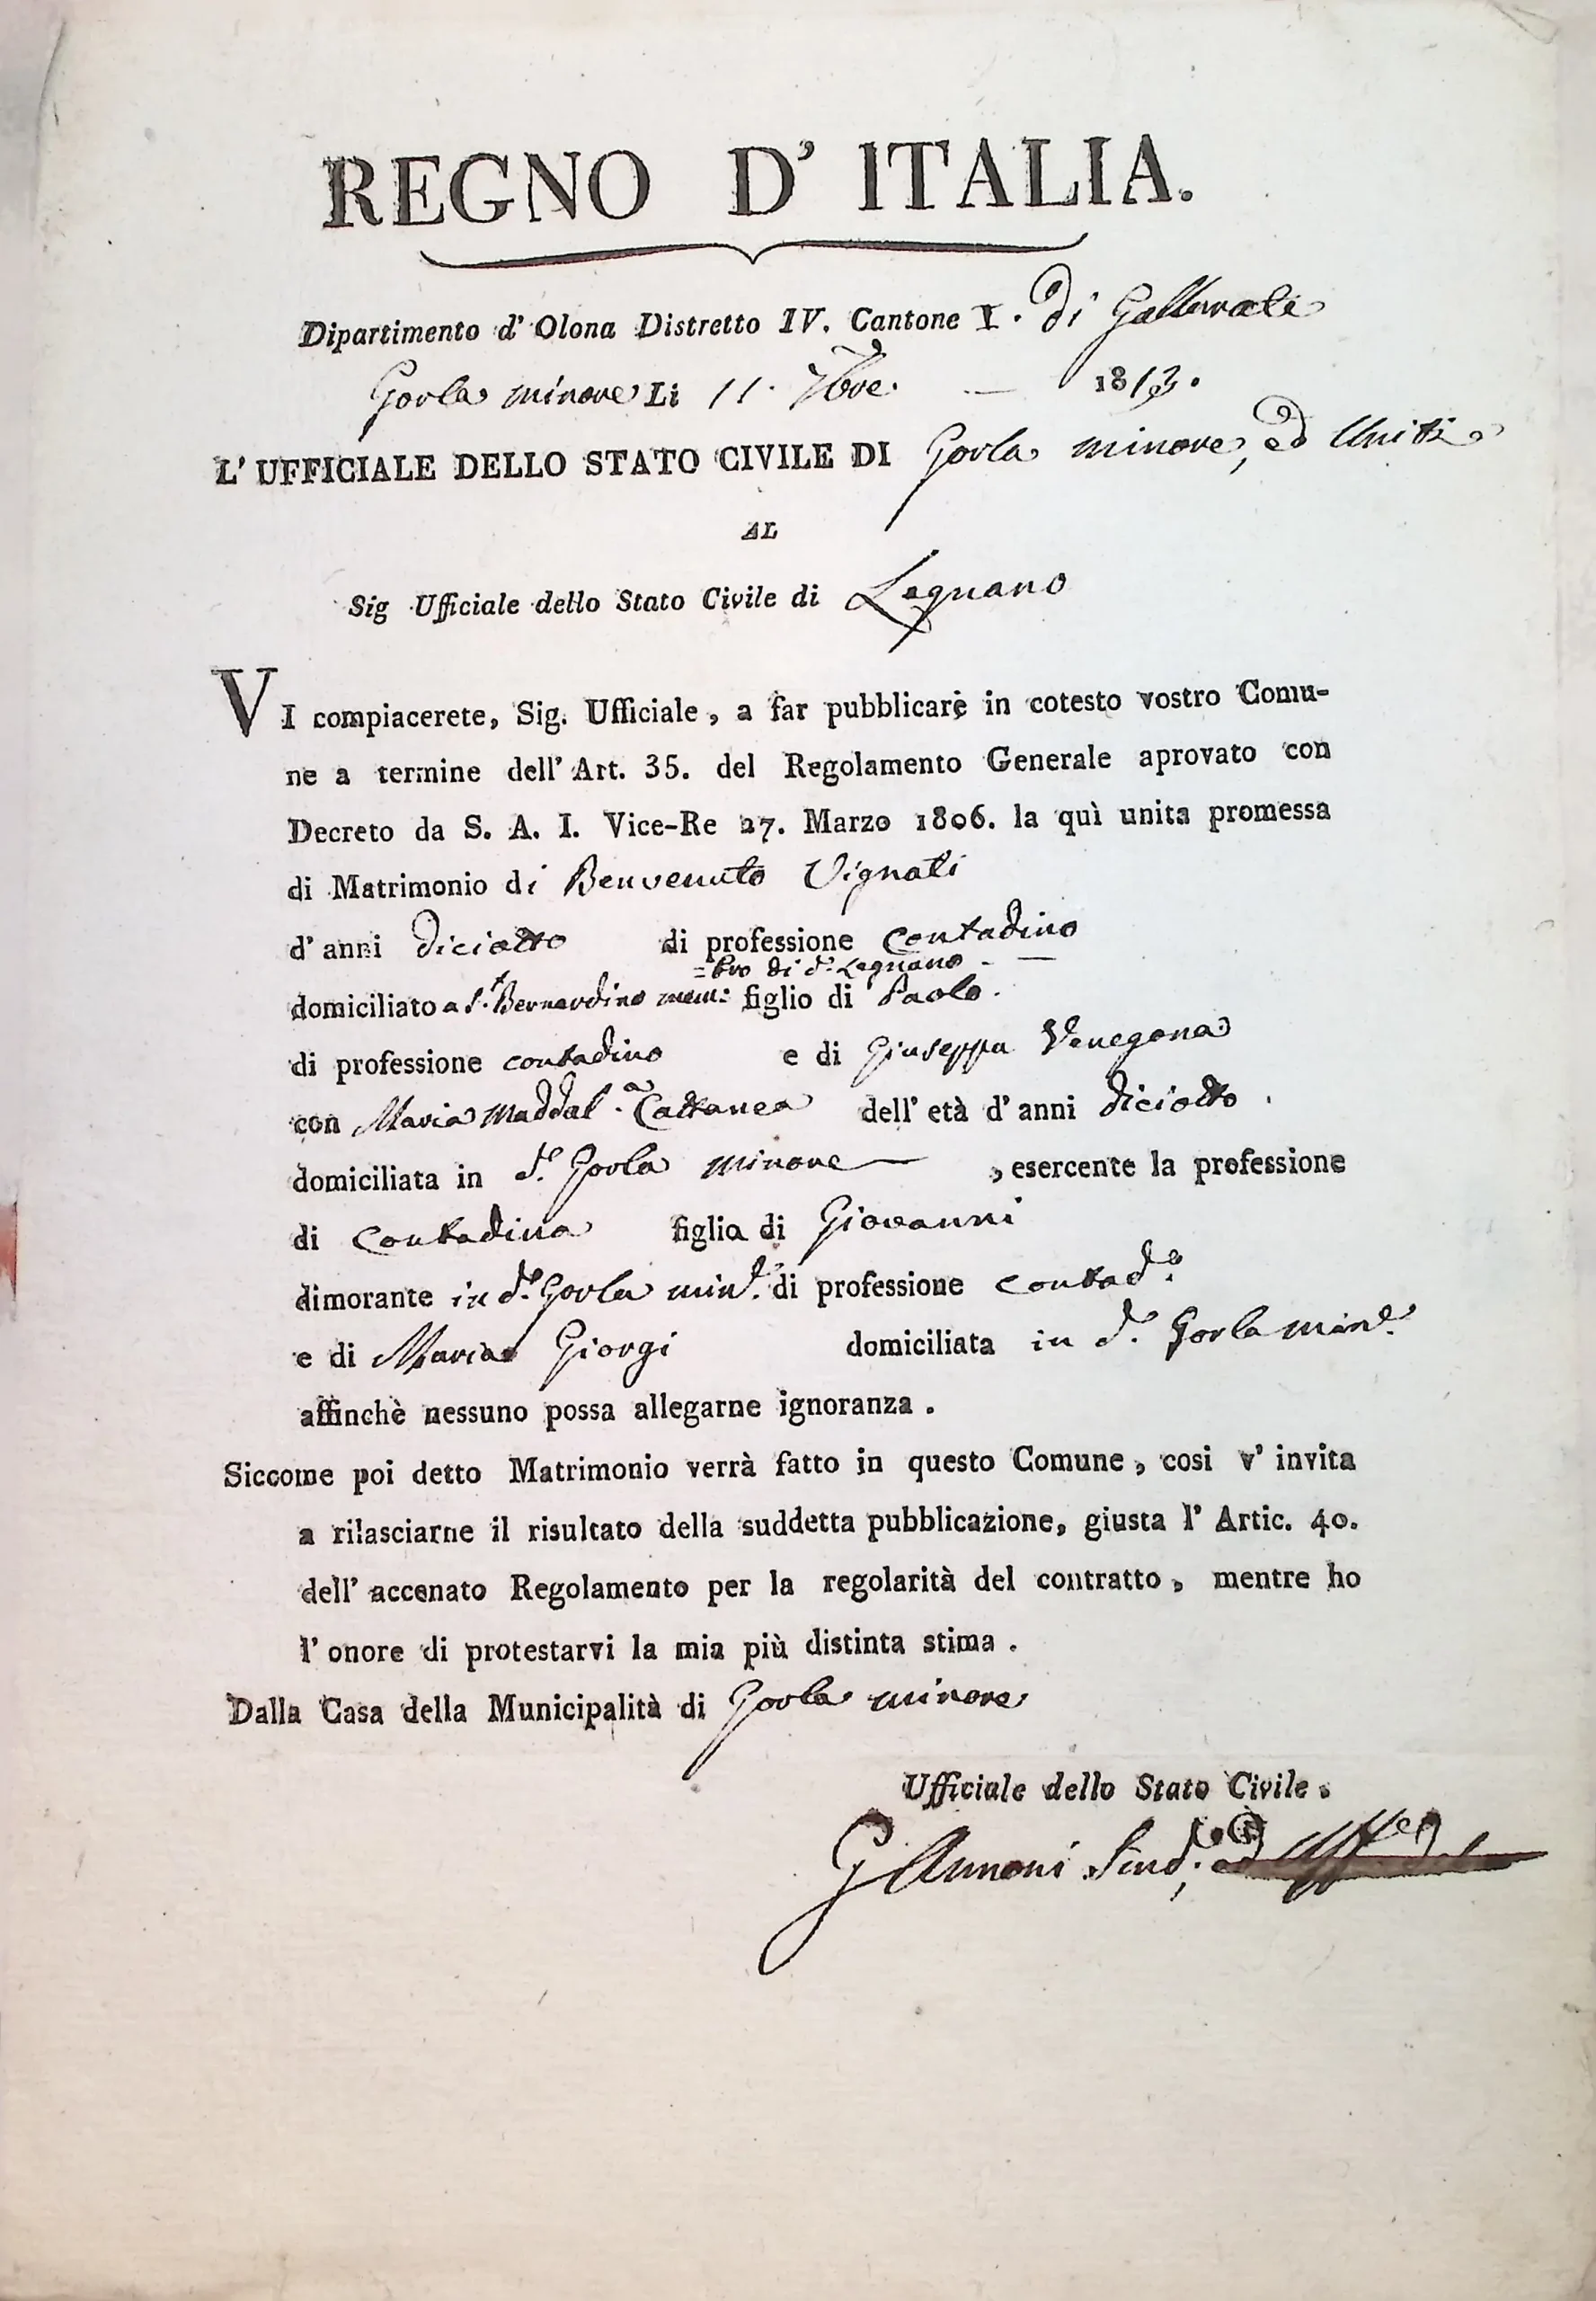 REGNO D' ITALIA.
Dipartimento d' Olona Distretto IV. Cantone I. di Gallarate
Gorla minore Li 11. 7bre. — 1813.
L' UFFICIALE DELLO STATO CIVILE DI Gorla minore, ed Uniti
AL
Sig Ufficiale dello Stato Civile di Legnano
VI compiacerete, Sig. Ufficiale, a far pubblicare in cotesto vostro Comu-
ne a termine dell' Art. 35. del Regolamento Generale aprovato con
Decreto da S. A. I. Vice-Re 27. Marzo 1806. la quì unita promessa
di Matrimonio di Benvenuto Vignati
d' anni diciotto di professione Contadino
=bro di d.º Legnano. —
domiciliato a S.t Bernardino mem: figlio di Paolo.
di professione contadino e di Giuseppa Venegona
con Maria Maddal.a Cattanea dell' età d' anni diciotto.
domiciliata in d.º Gorla minore —, esercente la professione
di Contadina figlia di Giovanni
dimorante in d.º Gorla min.e di professione contad.º
e di Maria Giorgi domiciliata in d.º Gorla min.e
affinchè nessuno possa allegarne ignoranza.
Siccome poi detto Matrimonio verrà fatto in questo Comune, cosi v' invita
a rilasciarne il risultato della suddetta pubblicazione, giusta l' Artic. 40.
dell' accenato Regolamento per la regolarità del contratto, mentre ho
l' onore di protestarvi la mia più distinta stima.
Dalla Casa della Municipalità di Gorla minore
Ufficiale dello Stato Civile.
G Annoni Sind.co